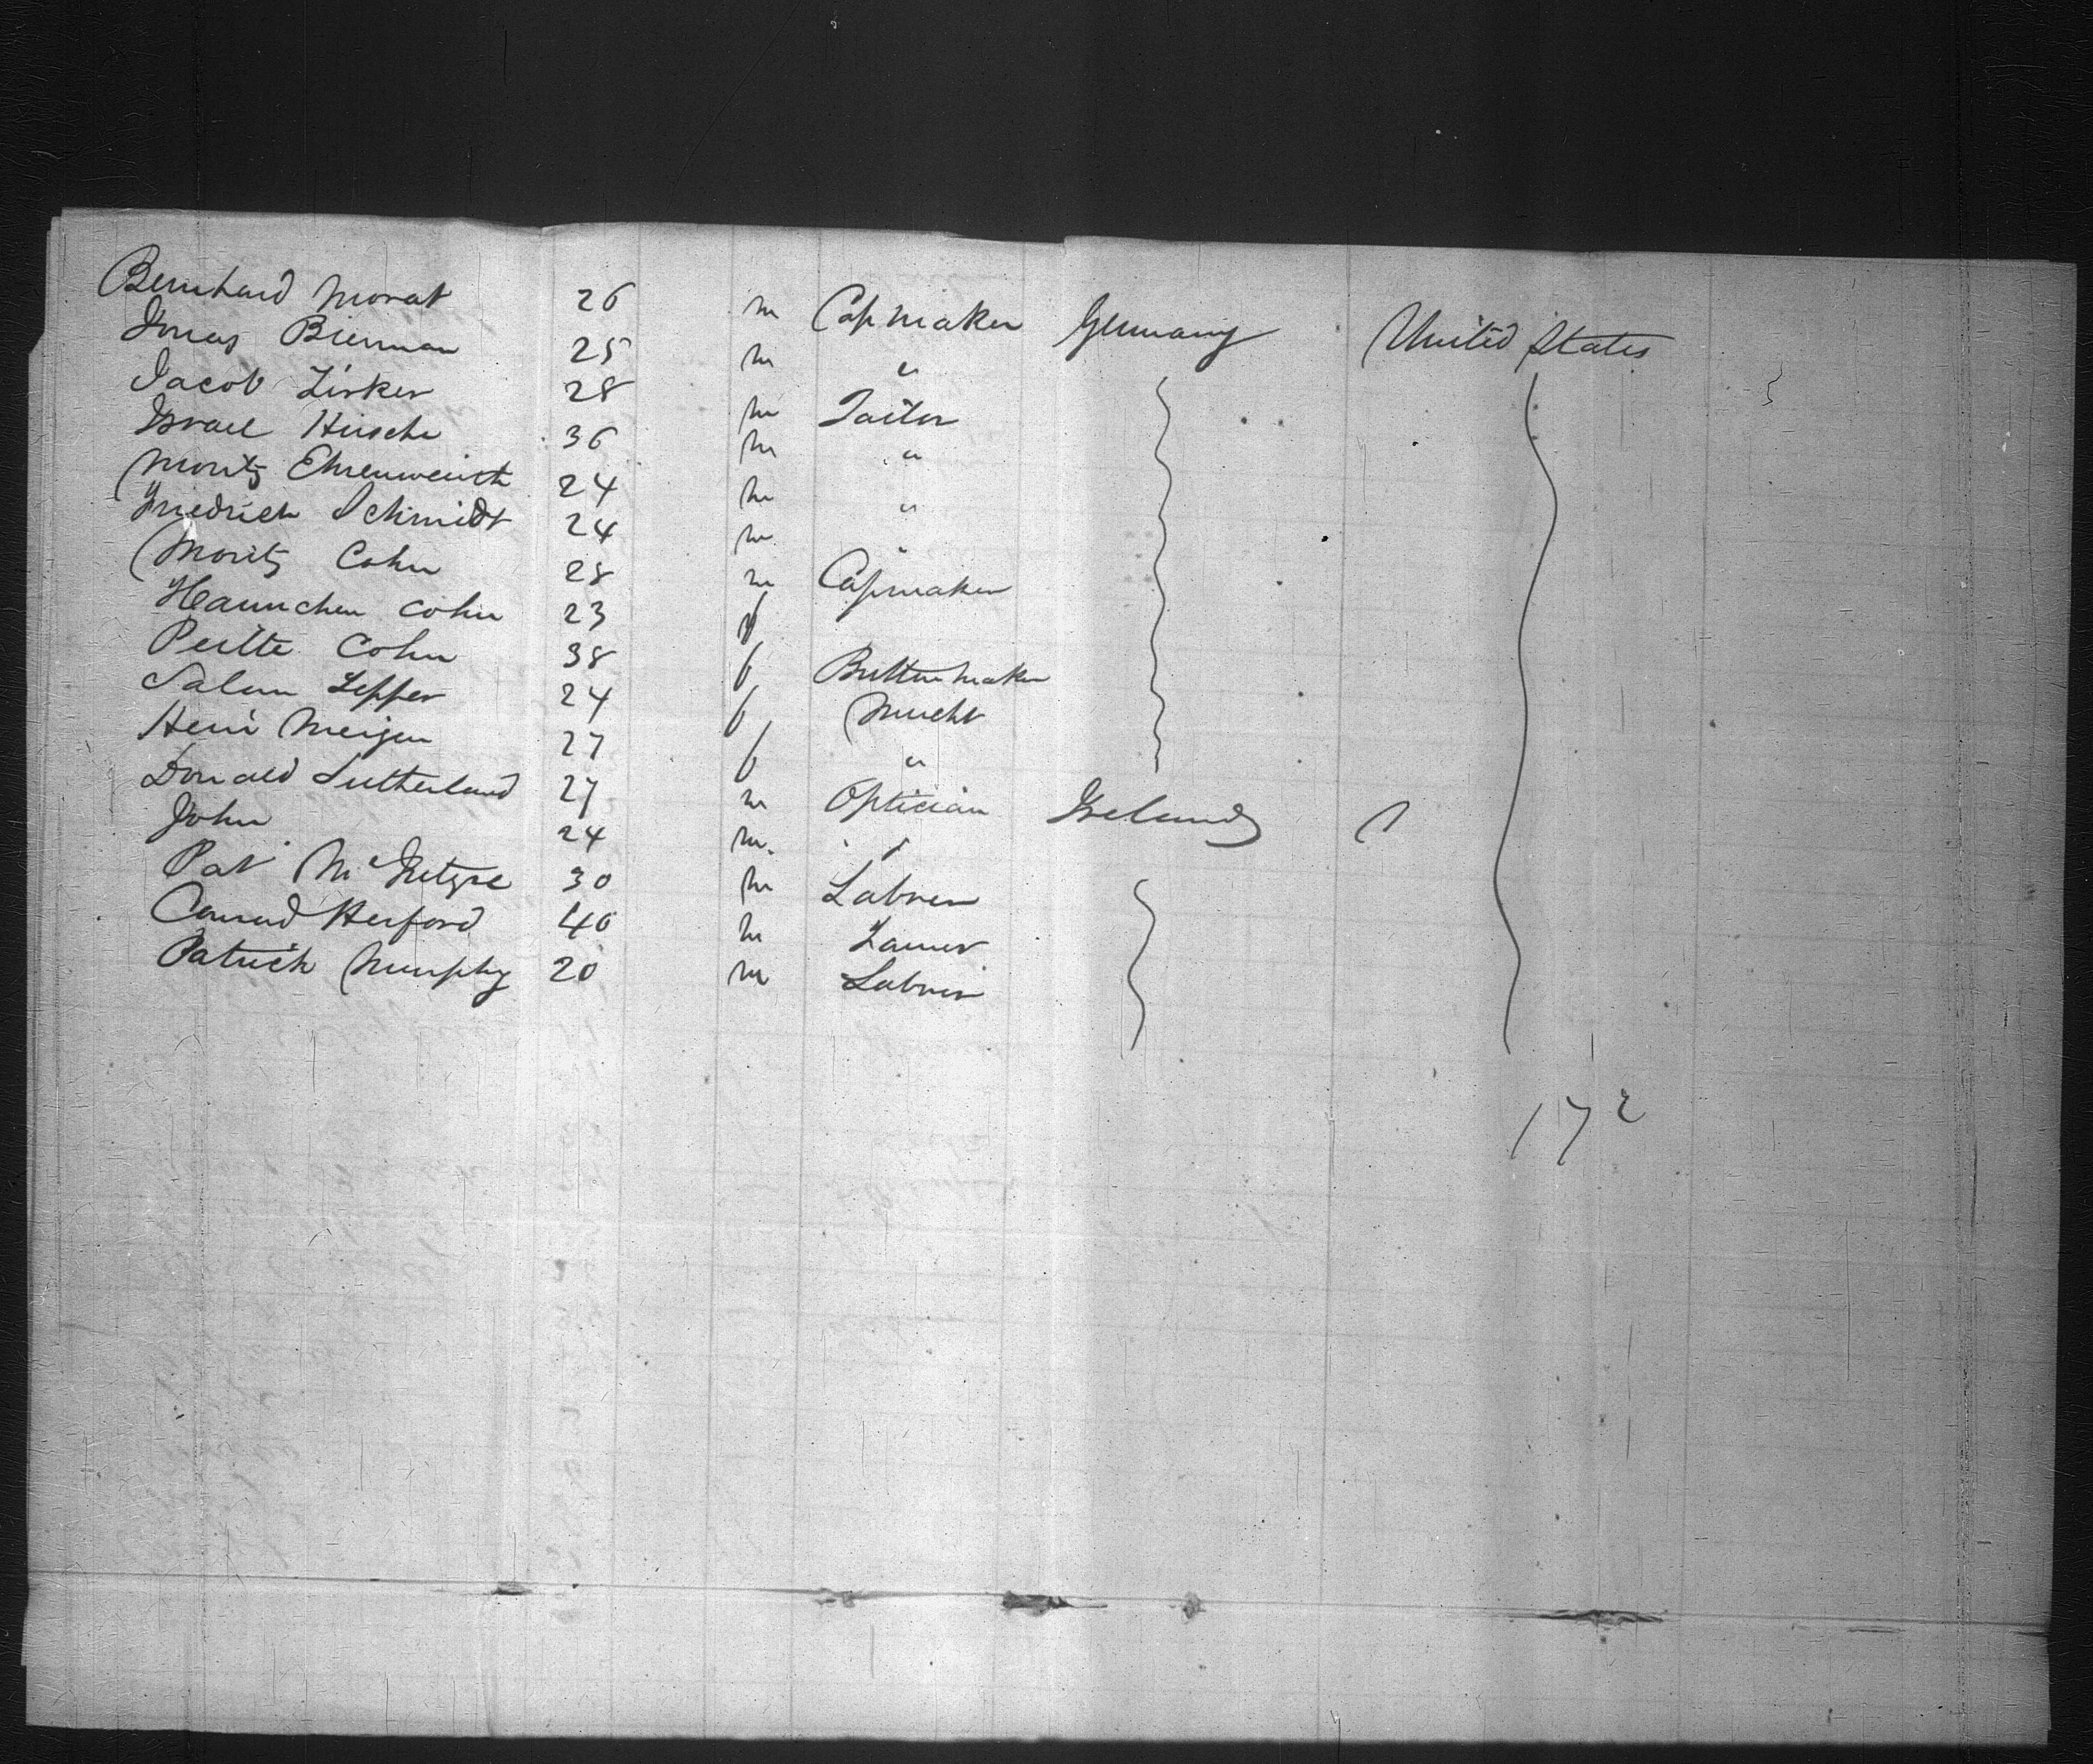 Bernhard Morat 26 m Capmaker Germany United States
Jonas Bierman 25 m "
Jacob Zirker 28 m Tailor
Israel Hirsche 36 m "
Moritz Ehrenwerth 24 m "
Friedrich Schmidt 24 m "
Moritz Cohn 28 m Capmaker
Haunchen Cohn 23 f
Peitte Cohn 38 f Buttonmaker
Salem Zepper 24 f
Henri Meijen 27 f "
Donald Sutherland 27 m Optician Ireland
John " 24 m "
Pat McIntyre 30 m Labrer
Conrad Herford 40 m
Patrick Murphy 20 m Labrer
172